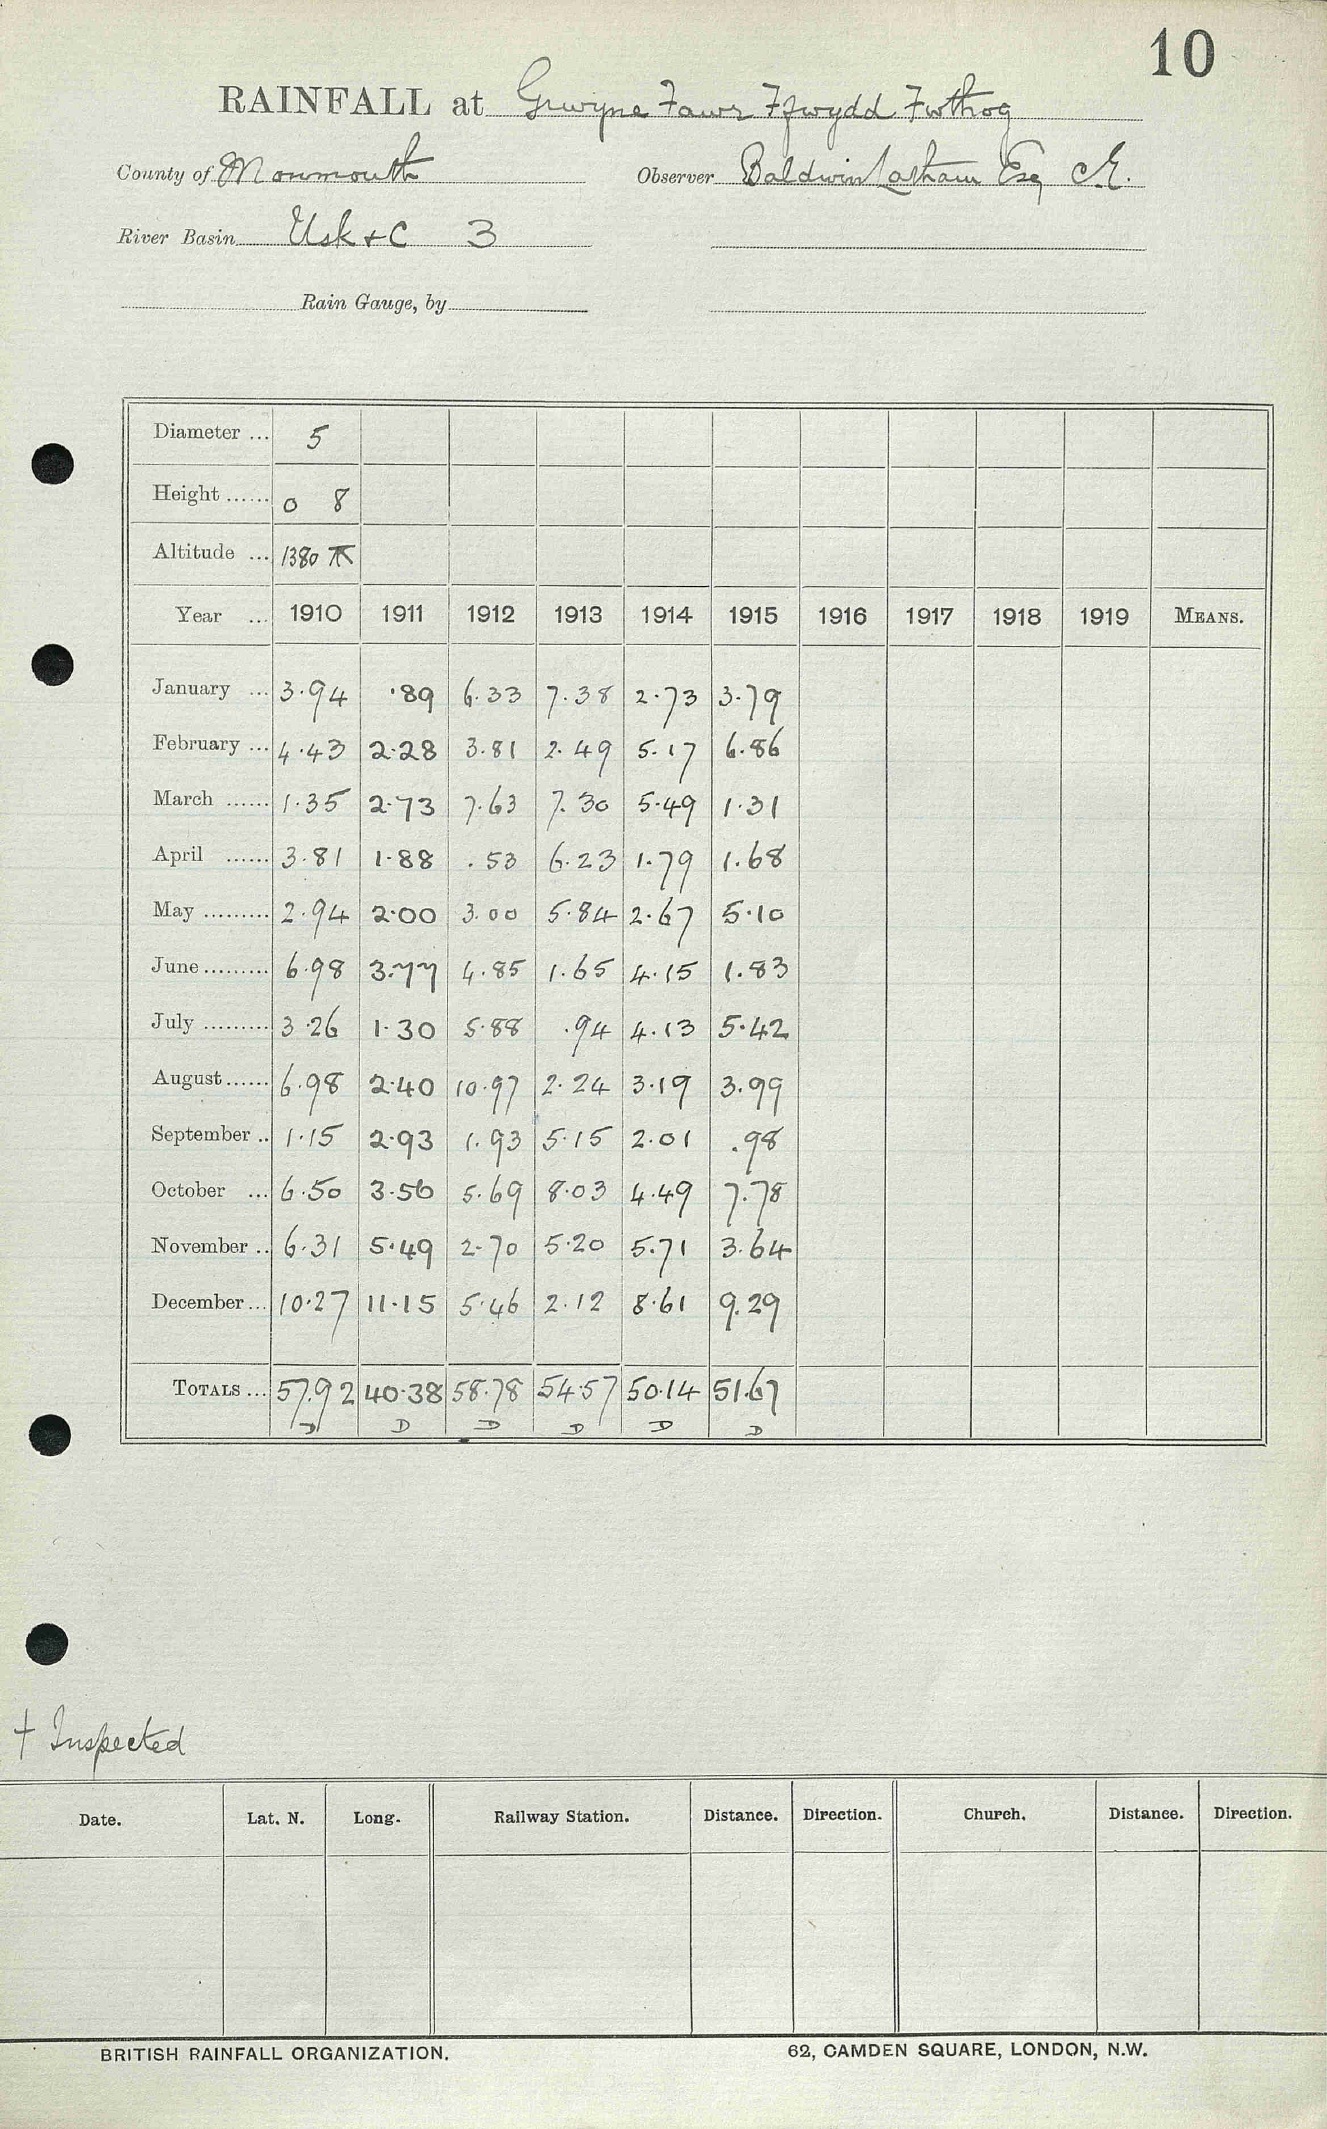 10
RAINFALL at Grwyne Fawr Ffwydd Fwthog
County of Monmouth Observer Baldwin Latham Esq C.E.
River Basin Usk + C 3
Rain Gauge, by
Diameter ... 5
Height ...... 0 8
Altitude ... 1380
Year ... 1910 1911 1912 1913 1914 1915 1916 1917 1918 1919 MEANS.
January ... 3.94 .89 6.33 7.38 2.73 3.79
February ... 4.43 2.28 3.81 2.49 5.17 6.86
March ...... 1.35 2.73 7.63 7.30 5.49 1.31
April ...... 3.81 1.88 .53 6.23 1.79 1.68
May ......... 2.94 2.00 3.00 5.84 2.67 5.10
June ......... 6.98 3.77 4.85 1.65 4.15 1.83
July ......... 3.26 1.30 5.88 .94 4.13 5.42
August ...... 6.98 2.40 10.97 2.24 3.19 3.99
September .. 1.15 2.93 1.93 5.15 2.01 .98
October ... 6.50 3.56 5.69 8.03 4.49 7.78
November .. 6.31 5.49 2.70 5.20 5.71 3.64
December ... 10.27 11.15 5.46 2.12 8.61 9.29
TOTALS ... 57.92 40.38 58.78 54.57 50.14 51.67
D D D D D D
† Inspected
Date. Lat. N. Long. Railway Station. Distance. Direction. Church. Distance. Direction.
BRITISH RAINFALL ORGANIZATION. 62, CAMDEN SQUARE, LONDON, N.W.